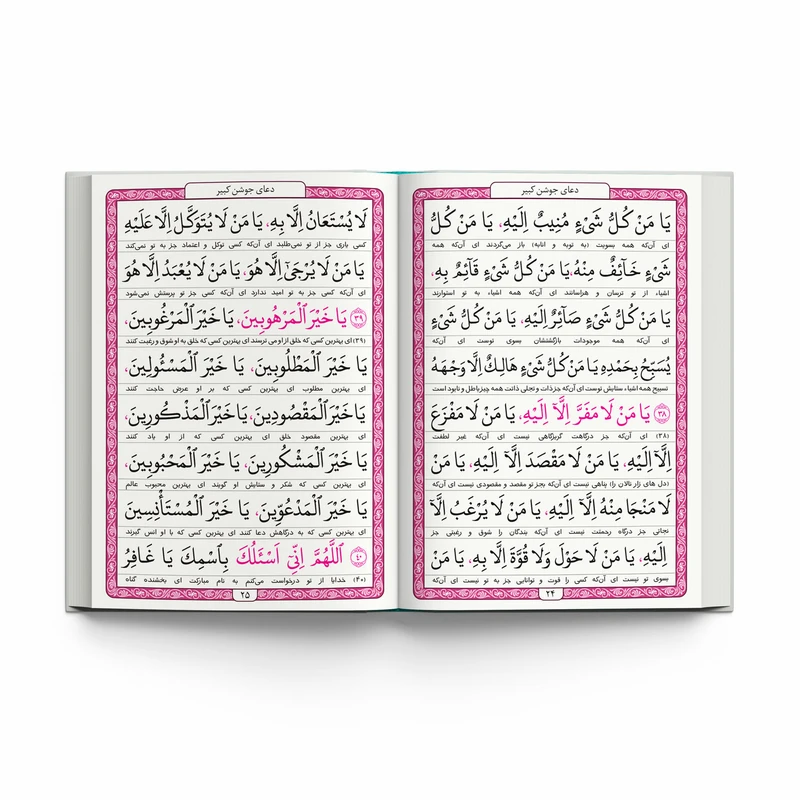 دعای جوشن کبیر
یَا مَنْ کُلُّ شَیْءٍ مُنِیبٌ اِلَیْهِ، یَا مَنْ کُلُّ
ای آن‌که همه بسویت (به توبه و انابه) باز می‌گردند ای آن‌که همه
شَیْءٍ خَآئِفٌ مِنْهُ، یَا مَنْ کُلُّ شَیْءٍ قَآئِمٌ بِهِ،
اشیاء از تو ترسان و هراسانند ای آن‌که همه اشیاء به تو استوارند
یَا مَنْ کُلُّ شَیْءٍ صَآئِرٌ اِلَیْهِ، یَا مَنْ کُلُّ شَیْءٍ
ای آن‌که همه موجودات بازگشتشان بسوی توست ای آن‌که
یُسَبِّحُ بِحَمْدِهِ یَا مَنْ کُلُّ شَیْءٍ هَالِکٌ اِلَّا وَجْهَهُ
تسبیح همه اشیاء ستایش توست ای آن‌که جز ذات و تجلی ذاتت همه چیز باطل و نابود است
۳۸ یَا مَنْ لَا مَفَرَّ اِلَّآ اِلَیْهِ، یَا مَنْ لَا مَفْزَعَ
(۳۸) ای آن‌که جز درگاهت گریزگاهی نیست ای آن‌که غیر لطفت
اِلَّآ اِلَیْهِ، یَا مَنْ لَا مَقْصَدَ اِلَّآ اِلَیْهِ، یَا مَنْ
(دل های زار نالان را) پناهی نیست ای آن‌که بجز تو مقصد و مقصودی نیست ای آن‌که
لَا مَنْجَا مِنْهُ اِلَّآ اِلَیْهِ، یَا مَنْ لَا یُرْغَبُ اِلَّآ
نجاتی جز درگاه رحمتت نیست ای آن‌که بندگان را شوق و رغبتی جز
اِلَیْهِ، یَا مَنْ لَا حَوْلَ وَلَا قُوَّةَ اِلَّا بِهِ، یَا مَنْ
بسوی تو نیست ای آن‌که کسی را قوت و توانایی جز به تو نیست ای آن‌که
۲۴
دعای جوشن کبیر
لَا یُسْتَعَانُ اِلَّا بِهِ، یَا مَنْ لَا یُتَوَکَّلُ اِلَّا عَلَیْهِ
کسی یاری جز از تو نمی‌طلبد ای آن‌که کسی توکل و اعتماد جز به تو نمی‌کند
یَا مَنْ لَا یُرْجَیٰ اِلَّا هُوَ، یَا مَنْ لَا یُعْبَدُ اِلَّا هُوَ
ای آن‌که کسی جز به تو امید ندارد ای آن‌که کسی جز تو پرستش نمی‌شود
۳۹ یَا خَیْرَ الْمَرْهُوبِینَ، یَا خَیْرَ الْمَرْغُوبِینَ،
(۳۹) ای بهترین کسی که خلق از او می ترسند ای بهترین کسی که خلق به او شوق و رغبت کنند
یَا خَیْرَ الْمَطْلُوبِینَ، یَا خَیْرَ الْمَسْئُولِینَ،
ای بهترین مطلوب ای بهترین کسی که بر او عرض حاجت کنند
یَا خَیْرَ الْمَقْصُودِینَ، یَا خَیْرَ الْمَذْکُورِینَ،
ای بهترین مقصود خلق ای بهترین کسی که از او یاد کنند
یَا خَیْرَ الْمَشْکُورِینَ، یَا خَیْرَ الْمَحْبُوبِینَ،
ای بهترین کسی که شکر و ستایش او گویند ای بهترین محبوب عالم
یَا خَیْرَ الْمَدْعُوِّینَ، یَا خَیْرَ الْمُسْتَأْنِسِینَ
ای بهترین کسی که به درگاهش دعا کنند ای بهترین کسی که با او انس گیرند
۴۰ اَللّٰهُمَّ اِنِّیٓ اَسْئَلُکَ بِاسْمِکَ یَا غَافِرُ
(۴۰) خدایا از تو درخواست می‌کنم به نام مبارکت ای بخشنده گناه
۲۵